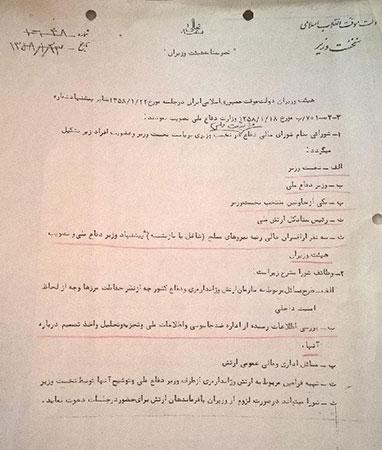 دولت موقت انقلاب اسلامی
نخست وزیر
شماره
تاریخ
"تصویبنامه هیئت وزیران"
هیئت وزیران دولت موقت جمهوری اسلامی ایران در جلسه مورخ ۱۳۵۸/۱/۲۲ بنابر پیشنهاد شماره
مورخ ۱۳۵۸/۱/۱۸ وزارت دفاع ملی تصویب نمودند :
۱- شورائی بنام شورای عالی دفاع در نخست وزیری بریاست نخست وزیر و عضویت افراد زیر تشکیل
میگردد :
الف - نخست وزیر
ب - وزیر دفاع ملی
پ - یکی از معاونین منتخب نخست وزیر
ت - رئیس ستاد کل ارتش ملی
ث - سه نفر از افسران عالی رتبه نیروهای مسلح (شاغل یا بازنشسته) به پیشنهاد وزیر دفاع ملی و تصویب
هیئت وزیران
۲- وظائف شورا بشرح زیر است :
الف - طرح مسائل مربوط به سازمان ارتش و ژاندارمری و دفاع کشور چه از نظر حفاظت مرزها و چه از لحاظ
امنیت داخلی
ب - بررسی اطلاعات رسیده از اداره ضد جاسوسی و اطلاعات ملی و تجزیه و تحلیل و اخذ تصمیم درباره
آنها .
پ - مسائل اداری و مالی عمومی ارتش
ت - تهیه فرامین مربوط به ارتش و ژاندارمری از طرف وزیر دفاع ملی و توشیح آنها توسط نخست وزیر
ث - شورا میتواند در صورت لزوم از وزیران یا فرماندهان ارتش برای حضور در جلسات دعوت نماید .